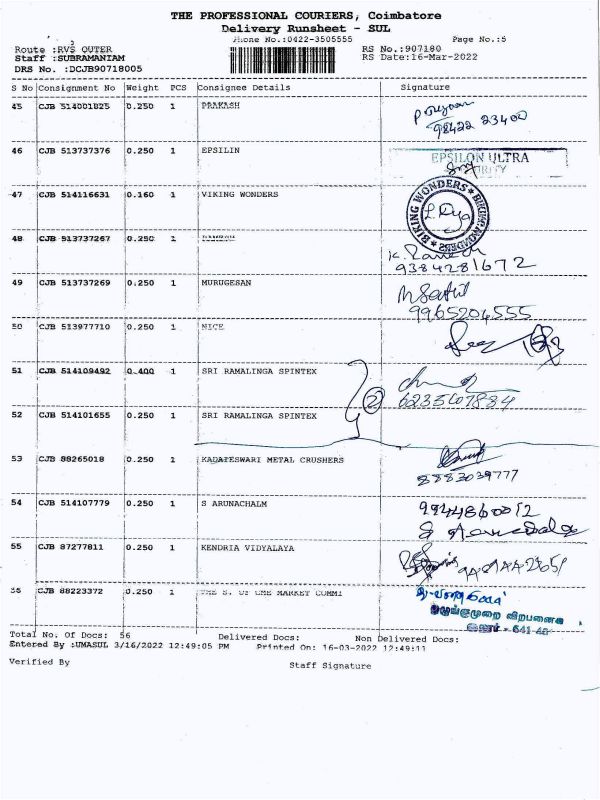 THE PROFESSIONAL COURIERS, Coimbatore
Delivery Runsheet - SUL
Phone No.:0422-3505555 Page No.:5
Route :RVS OUTER RS No.:907180
Staff :SUBRAMANIAM RS Date:16-Mar-2022
DRS No. :DCJB90718005
S No Consignment No Weight PCS Consignee Details Signature
45 CJB 514001825 0.250 1 PRAKASH
98422 23400
46 CJB 513737376 0.250 1 EPSILIN EPSILON ULTRA
47 CJB 514116631 0.160 1 VIKING WONDERS BIKING WONDERS * BIKING WONDERS *
48 CJB 513737267 0.250 1 K. Ramesh
9384281672
49 CJB 513737269 0.250 1 MURUGESAN
9965204555
50 CJB 513977710 0.250 1 NICE
51 CJB 514109492 0.400 1 SRI RAMALINGA SPINTEX
2
52 CJB 514101655 0.250 1 SRI RAMALINGA SPINTEX
53 CJB 88265018 0.250 1 KADATESWARI METAL CRUSHERS
8883039777
54 CJB 514107779 0.250 1 S ARUNACHALM 9944860012
55 CJB 87277811 0.250 1 KENDRIA VIDYALAYA
CJB 88223372 0.250 1 MARKET COMMI
ஒழுங்குமுறை விற்பனைக்
Total No. Of Docs: 56 Delivered Docs: Non Delivered Docs:
Entered By :UMASUL 3/16/2022 12:49:05 PM Printed On: 16-03-2022 12:49:11
Verified By Staff Signature